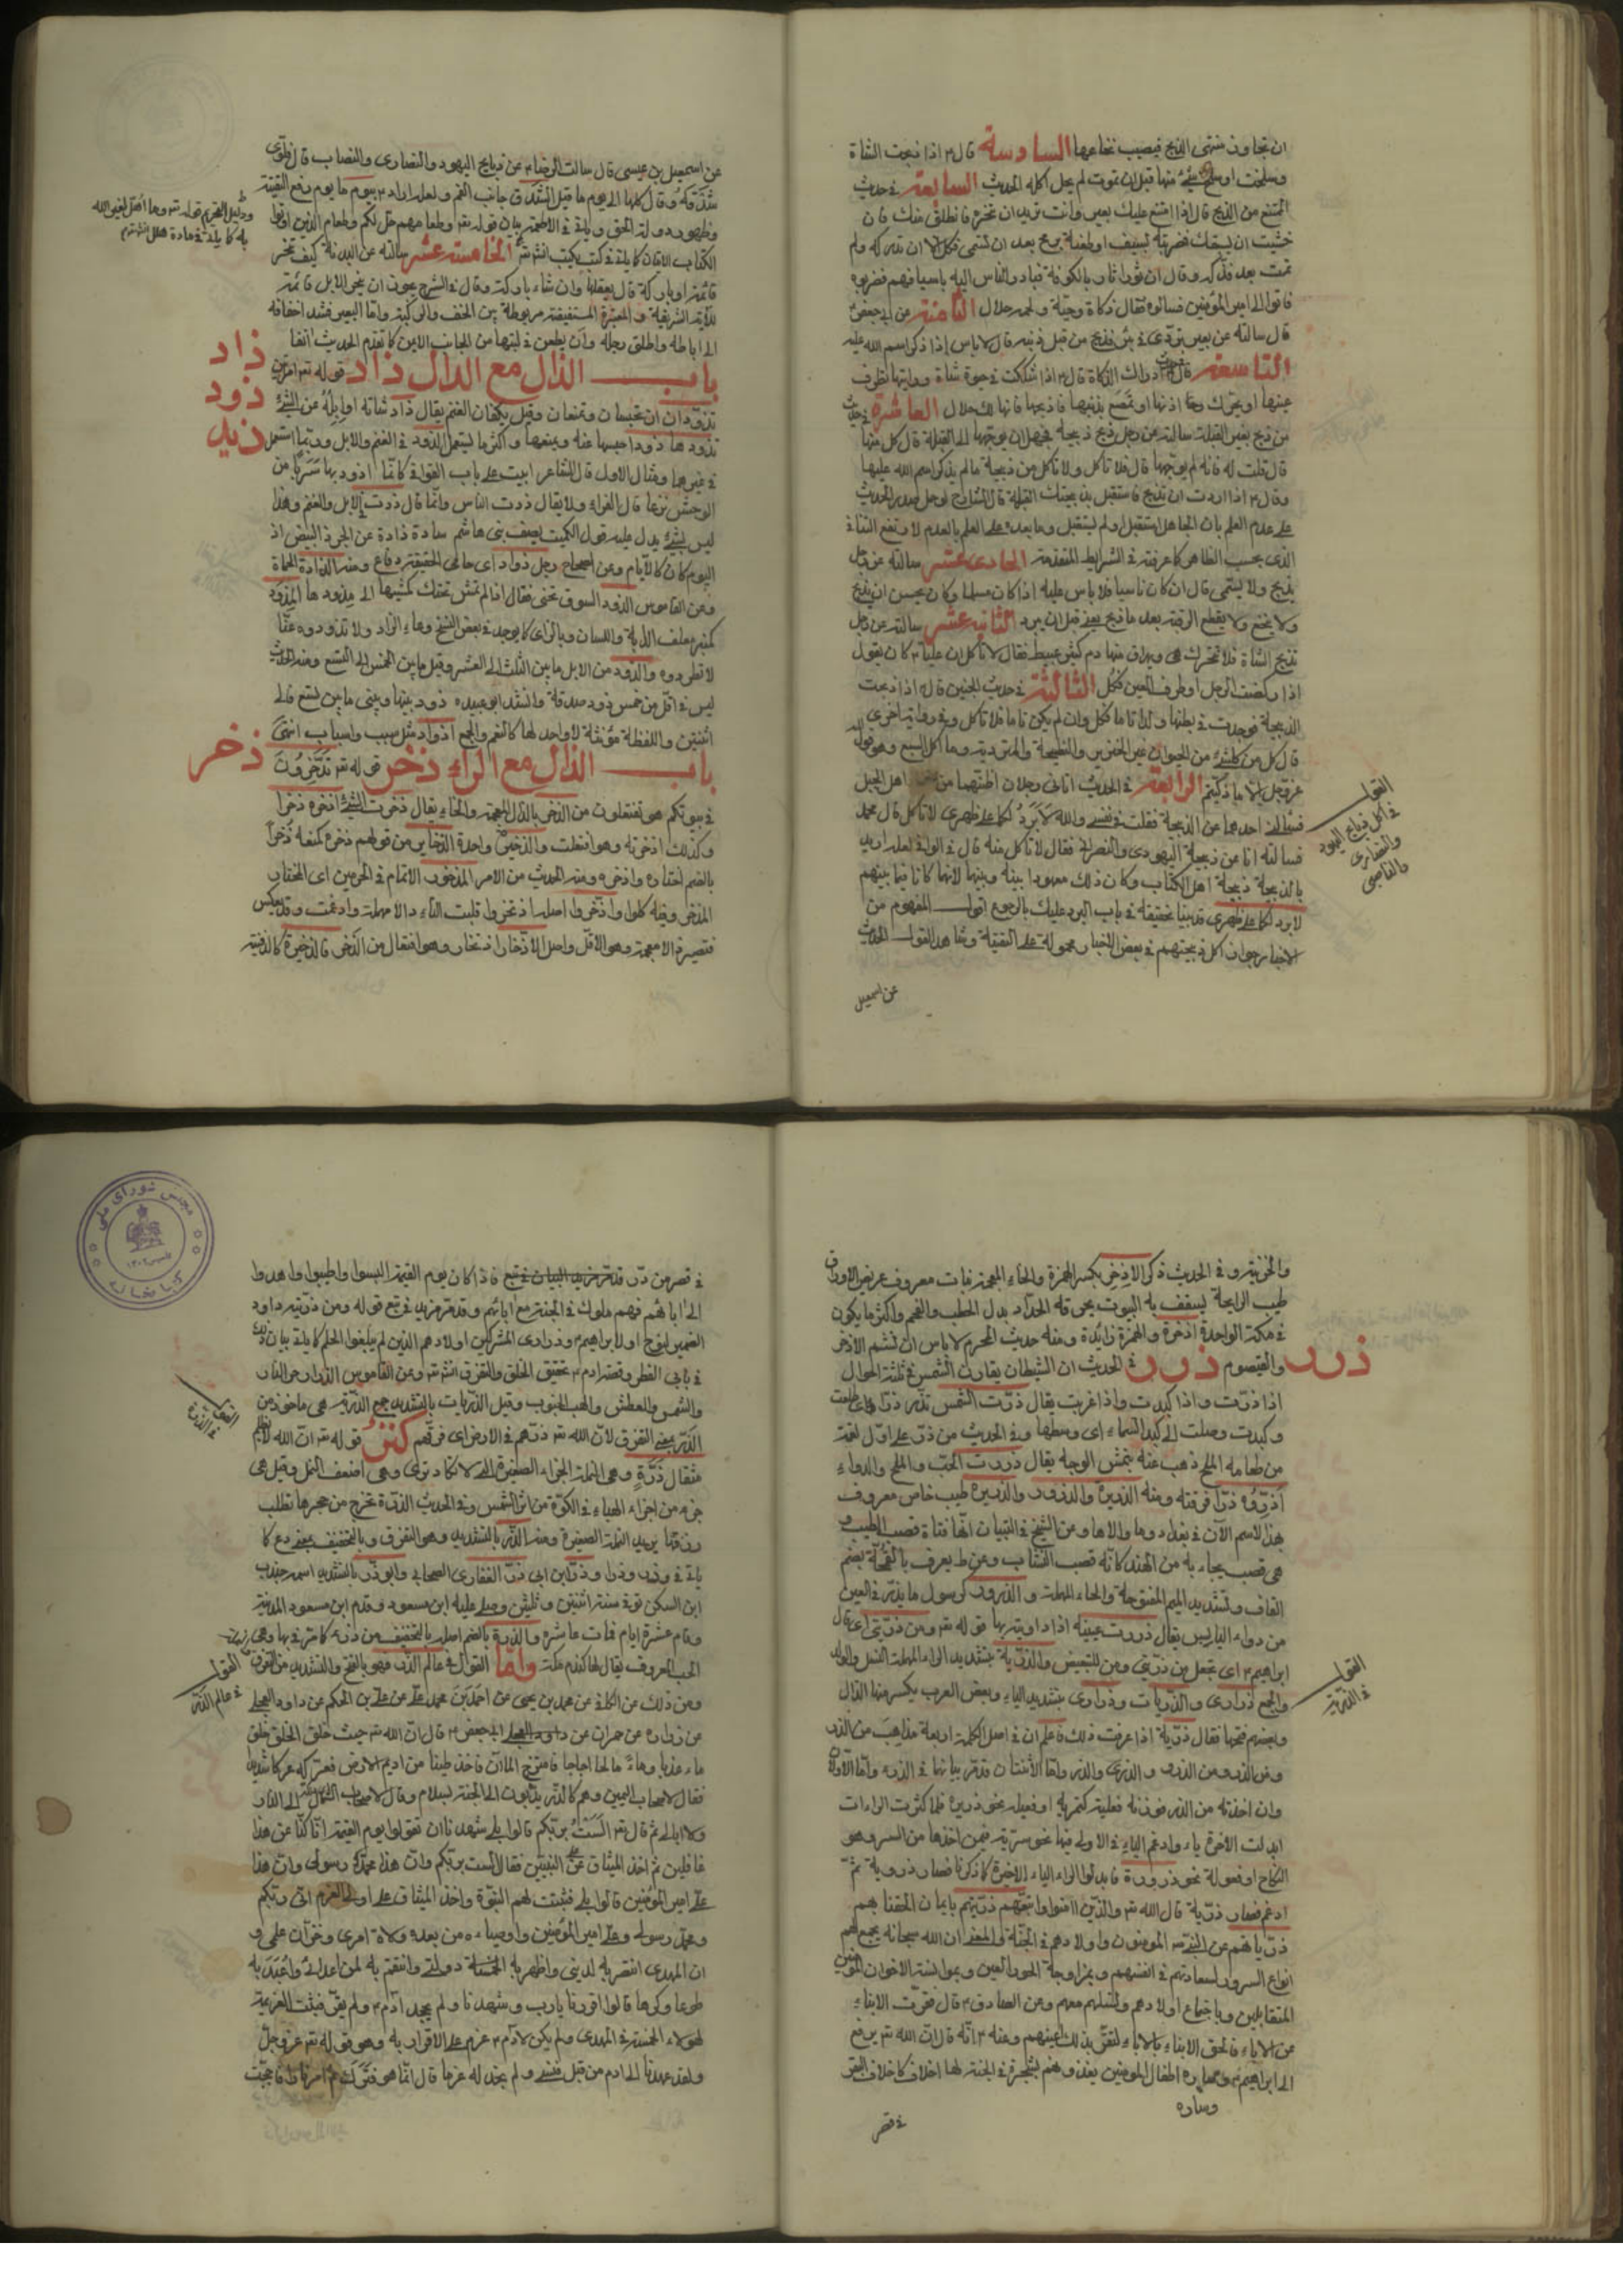 ان تجاوز منتهى الذبح فيصيب نخاعها السادسة قال ۴ اذا ذبحت الشاة
وسلخت او سلخ شئ منها قبل ان تموت لم يحل اكله الحديث السابعة في حديث
الممتنع من الذبح قال اذا امتنع عليك بعير وانت تريد ان تنحره فانطلق منك فان
خشيت ان يسبقك فضربته بسيف او طعنته برمح بعد ان تسمى فكل الا ان تدركه ولم
يمت بعد فذكه وقال ان ثورا ثار بالكوفة فبادر الناس اليه باسيافهم فضربوه
فاتوا امير المؤمنين فسالوه فقال ذكاة وحية ولحمه حلال الثامنة عن ابي جعفر ۴
قال سالته عن بعير تردى في بئر فذبح من قبل ذنبه قال لا باس اذا ذكر اسم الله عليه
التاسعة ادراك الذكاة قال ۴ اذا شككت في حيوة شاة ورايتها تطرف
عينها او تحرك اذنها او تمصع بذنبها فاذبحها فانها لك حلال العاشرة
من ذبح بغير القبلة سالته عن رجل ذبح ذبيحة فجهل ان يوجهها الى القبلة قال كل منها
قال قلت له فانه لم يوجهها قال فلا تاكل ولا تاكل من ذبيحة ما لم يذكر اسم الله عليها
وقال ۴ اذا اردت ان تذبح فاستقبل بذبيحتك القبلة
على عدم العلم بان الجاهل استقبل او لم يستقبل وما بعده على العلم بالعدم
الذى بحسب الظاهر كما عرفته في الشرايط المتقدمة الحادى عشر سالته عن رجل
يذبح ولا يسمى قال ان كان ناسيا فلا باس عليه اذا كان مسلما وكان يحسن ان يذبح
ولا ينخع ولا يقطع الرقبة بعد ما ذبح يعني قبل ان يبرد الثانية عشر سالته عن رجل
تذبح الشاة فلا تتحرك ويهراق منها دم كثير عبيط فقال لا تاكل ان عليا ۴ كان يقول
اذا ركضت الرجل او طرف العين فكل الثالثة في حديث الجنين قال ۴ اذا ذبحت
الذبيحة فوجدت في بطنها ولدا تاما فكل وان لم يكن تاما فلا تاكل وفي رواية اخرى
قال كل من كل شئ من الحيوان غير الخنزير والنطيحة والمتردية وما اكل السبع وهو قول
عز وجل الا ما ذكيتم الرابعة في الحديث اتانى رجلان اظنهما من اهل الجبل
فسالنى احدهما عن الذبيحة فقلت في نفسي والله لابرد لكما على ظهرى لا تاكل قال محمد
فسالته انا عن ذبيحة اليهودى والنصرانى فقال لا تاكل منه قال في الوافى لعله اريد
بالذبيحة ذبيحة اهل الكتاب وكان ذلك معهودا بينه وبينهما لانهما كانا فيما بينهم
لابرد لكما على ظهرى قد بينا تحقيقه في باب البرد عليك بالرجوع اقول المفهوم من
الاخبار جواز اكل ذبيحتهم في بعض الاخبار محمولة على التقية وشاهد القول الحديث
القول
في اكل ذبايح اليهود
والنصارى
والناصبى
عن اسمعيل
عن اسمعيل بن عيسى قال سالت الرضا ۴ عن ذبايح اليهود والنصارى والنصاب قال فلوى
شدقه وقال كلها الى يوم ما قيل الشدق جانب الفم ولعله اراد ۴ بيوم ما يوم رفع التقية
وظهور دولة الحق وياتى في الاطعمة بيان قوله تعه وطعامهم حل لكم وطعام الذين اوتوا
الكتاب الخامسة عشر سالته عن البدنة كيف تنحر
قائمة او باركة قال يعقلها وان شاء باركة وقال في الشرح يجوز ان ينحر الابل قائمة
ودليل التحريم قوله تعه وما اهل لغير الله
به كما ياتى في مادة هلل انشاءتعه
الى اباطه واطلق رجله وان يطعن في لبتها من الجانب الايمن كما تقدم الحديث انفا
باب الذال مع الدال ذاد قوله تعه امراتين
ذاد
ذود
ذيد
تذودان ان تحبسان وتمنعان وقيل يكفان الغنم يقال ذاد شاته او ابله عن الشئ
يذودها ذودا حبسها عنه ومنعها واكثر ما يستعمل الذود في الغنم والابل وربما استعمل
في غيرهما ومثال الاول قال الشاعر ابيت على باب القوافى كانما اذود بها سربا من
الوحش نزعا قال الفراء ولا يقال ذدت الناس وانما قال ذدت الابل والغنم وهذا
ليس بشئ يدل عليه قول الكميت يصف بنى هاشم سادة ذادة عن الخرد البيض اذ
اليوم كان كالايام وعن الصحاح رجل ذواد اى حامى الحقيقة دفاع ومنه الذادة الحماة
وعن القاموس الذود السوق
كمنبر معلف الدابة واللسان وبالزاى كما يوجد في بعض النسخ وعاء الزاد ولا تذودوه عنا
لا تطردوه والذود من الابل ما بين الثلث الى العشر وقيل ما بين الخمس الى التسع ومنه الحديث
ليس في اقل من خمس ذود صدقة وانشد ابو عبيده ذود بينها وبينى ما بين تسع فالى
اثنتين واللفظة مؤنثة لا واحد لها كالنعم والجمع اذواد مثل سبب واسباب انتهى
باب الذال مع الراء ذخر قوله تعه تدخرون
ذخر
في بيوتكم هو تفتعلون من الذخر بالذال المعجمة والخاء يقال ذخرت الشئ اذخره ذخرا
وكذلك ادخرته وهو افتعلت والذخيرة واحدة الذخاير من قولهم ذخره كمنعه ذخرا
بالضم اختاره واذخره ومنه الحديث من الامر المذخور الاتمام في الحرمين اى المختار
المدخر وفيه كلوا وادخروا اصله اذتخروا قلبت التاء دالا مهملة وادغمت وقد يعكس
فتصير ذالا معجمة وهو الاقل واصل الادخار اذتخار وهو افتعال من الذخر فالذخيرة كالدفينة
والخزينة و في الحديث ذكر الاذخر بكسر الهمزة والخاء المعجمة نبات معروف عريض الاوراق
طيب الرايحة يسقف به البيوت يحرقه الحداد بدل الحطب والفحم واكثر ما يكون
في مكة الواحدة اذخرة والهمزة زائدة ومنه حديث المحرم لا باس ان تشم الاذخر
والقيصوم ذرر في الحديث ان الشيطان يقارن الشمس في ثلثة احوال
ذرر
اذا ذرت واذا كبدت واذا غربت يقال ذرت الشمس تذر ذرا اى طلعت
وكبدت وصلت الى كبد السماء اى وسطها وفي الحديث من ذر على اول لقمة
من طعامه الملح ذهب عنه بنمش الوجه يقال ذررت الحب والملح والدواء
اذره ذرا فرقته ومنه الذريرة والذرور والذريرة طيب خاص معروف
بهذا الاسم الآن في بغداد وما والاها وعن الشيخ في التبيان انها فتاة قصب الطيب و
هى قصب يجاء به من الهند كانه قصب النشاب وعن ط يعرف بالقمحة بضم
القاف وتشديد الميم المفتوحة والحاء المهملة والذرور كرسول ما يذر في العين
من دواء اليابس يقال ذررت عينيه اذا داويته بها قوله تعه ومن ذريتى اى قال
ابراهيم ۴ اى تجعل من ذريتى ومن للتبعيض والذرية بتشديد الراء المهملة النسل والولد
والجمع ذرارى والذريات وذرارى بتشديد الياء وبعض العرب يكسر منها الذال
وبعضهم فتحها فقال ذرية اذا عرفت ذلك فاعلم ان في اصل الكلمة اربعة مذاهب من الذرء
القول
في الذرية
وان اخذته من الذر فوزنه فعلية كقمرية او فعيلة نحو ذريرة فلما كثرت الراءات
ابدلت الاخرة ياء وادغم الياء في الاولى فيها نحو سرية فيمن اخذها من السر وهو
النكاح او فعولة نحو ذرورة فابدلوا الراء الياء الاخيرة كما ذكرنا فصار ذروية ثم
ادغم فصار ذرية قال الله تعه والذين آمنوا واتبعتهم ذريتهم بايمان الحقنا بهم
ذرياتهم عن النبى المؤمنون واولادهم في الجنة والمعنى ان الله سبحانه يجمع لهم
انواع السرور لسعادتهم في انفسهم وبمزاوجة الحور العين وبموانسة الاخوان المؤمنين
المتقابلين وباجتماع اولادهم ونسلهم معهم وعن الصادق ۴ قال قصرت الابناء
عن الآباء فالحق الابناء بالاباء لتقر بذلك اعينهم وعنه ۴ انه قال ان الله تعه يدفع
الى ابراهيم ۴ وساره اطفال المؤمنين يغذونهم بشجرة في الجنة لها اخلاف كاخلاف البقر
وساره
في قصر
في قصر من در قد مر مزيد البيان في تبع فاذا كان يوم القيمة البسوا واطيبوا واهدوا
الى آبائهم فهم ملوك في الجنة مع آبائهم وقد مر مزيد في تبع قوله ومن ذريته داود
الضمير لنوح او لابراهيم ۴ وذرارى المشركين اولادهم الذين لم يبلغوا الحلم كما ياتى بيان ذلك
في بابى الفطر وقصة ادم ۴ تحقيق الخلق والتفرق انشاءتعه وعن القاموس
والشمس والعطش وقيل الذريات بالتشديد جمع الذرية هى ماخوذ من
القول
في الذرة
الذر بمعنى التفرق لان الله تعه ذرهم في الارض اى فرقهم كنز قوله تعه ان الله لا يظلم
مثقال ذرة وهى النملة الحمراء الصغيرة التى لا تكاد ترى وهى اضعف النمل وقيل هى
جزء من اجزاء الهباء في الكوة من اثر الشمس وفي الحديث الذرة تخرج من حجرها تطلب
رزقها يريد النملة الصغيرة ومنه الذر بالتشديد وهو التفرق وبالتخفيف بمعنى دع كما
ياتى في وذر وذرا وذر ابن ابى ذر الغفارى الصحابى وابو ذر بالتشديد اسمه جندب
ابن السكن توفى سنة اثنتين وثلثين وصلى عليه ابن مسعود وقدم ابن مسعود المدينة
وقام عشرة ايام فمات عاشره والذرة بالضم اصله بالتخفيف من ذرء كما مر فيها وهى
الحب المعروف يقال لها كندم مكة واما القول في عالم الذر فهو بالفتح والتشديد من التفرق
القول
في عالم الذر
ومن ذلك عن الكافى عن محمد بن يحيى عن احمد بن محمد عن على بن الحكم عن داود العجلى
عن زراره عن حمران عن ابى جعفر ۴ قال ان الله تعه حيث خلق الخلق خلق
ماء عذبا وماء مالحا اجاجا فامتزج الماآن فاخذ طينا من اديم الارض فعركه عركا شديدا
فقال لاصحاب اليمين وهم كالذر يدبون الى الجنة بسلام وقال لاصحاب الشمال الى النار
ولا ابالى ثم قال تعه الست بربكم قالوا بلى شهدنا ان تقولوا يوم القيمة انا كنا عن هذا
غافلين ثم اخذ الميثاق على النبيين فقال الست بربكم وان هذا محمد رسولى وان هذا
على امير المؤمنين قالوا بلى فثبتت لهم النبوة واخذ الميثاق على اولى العزم انى ربكم
ومحمد رسوله وعلى امير المؤمنين واوصياءه من بعده ولاة امرى وخزان علمى و
ان المهدى انتصر به لدينى واظهر به دولتى وانتقم به لمن اعدائى واعبد به
طوعا وكرها قالوا اقررنا يارب وشهدنا ولم يجحد آدم ۴ ولم يقر فثبتت العزيمة
لهولاء الخمسة في المهدى ولم يكن لآدم ۴ عزم على الاقرار به وهو قوله تعه عز وجل
ولقد عهدنا الى ادم من قبل فنسى ولم نجد له عزما قال انما هو فترك ثم امر نارا فاججت
مجلس شورای ملی
کتابخانه